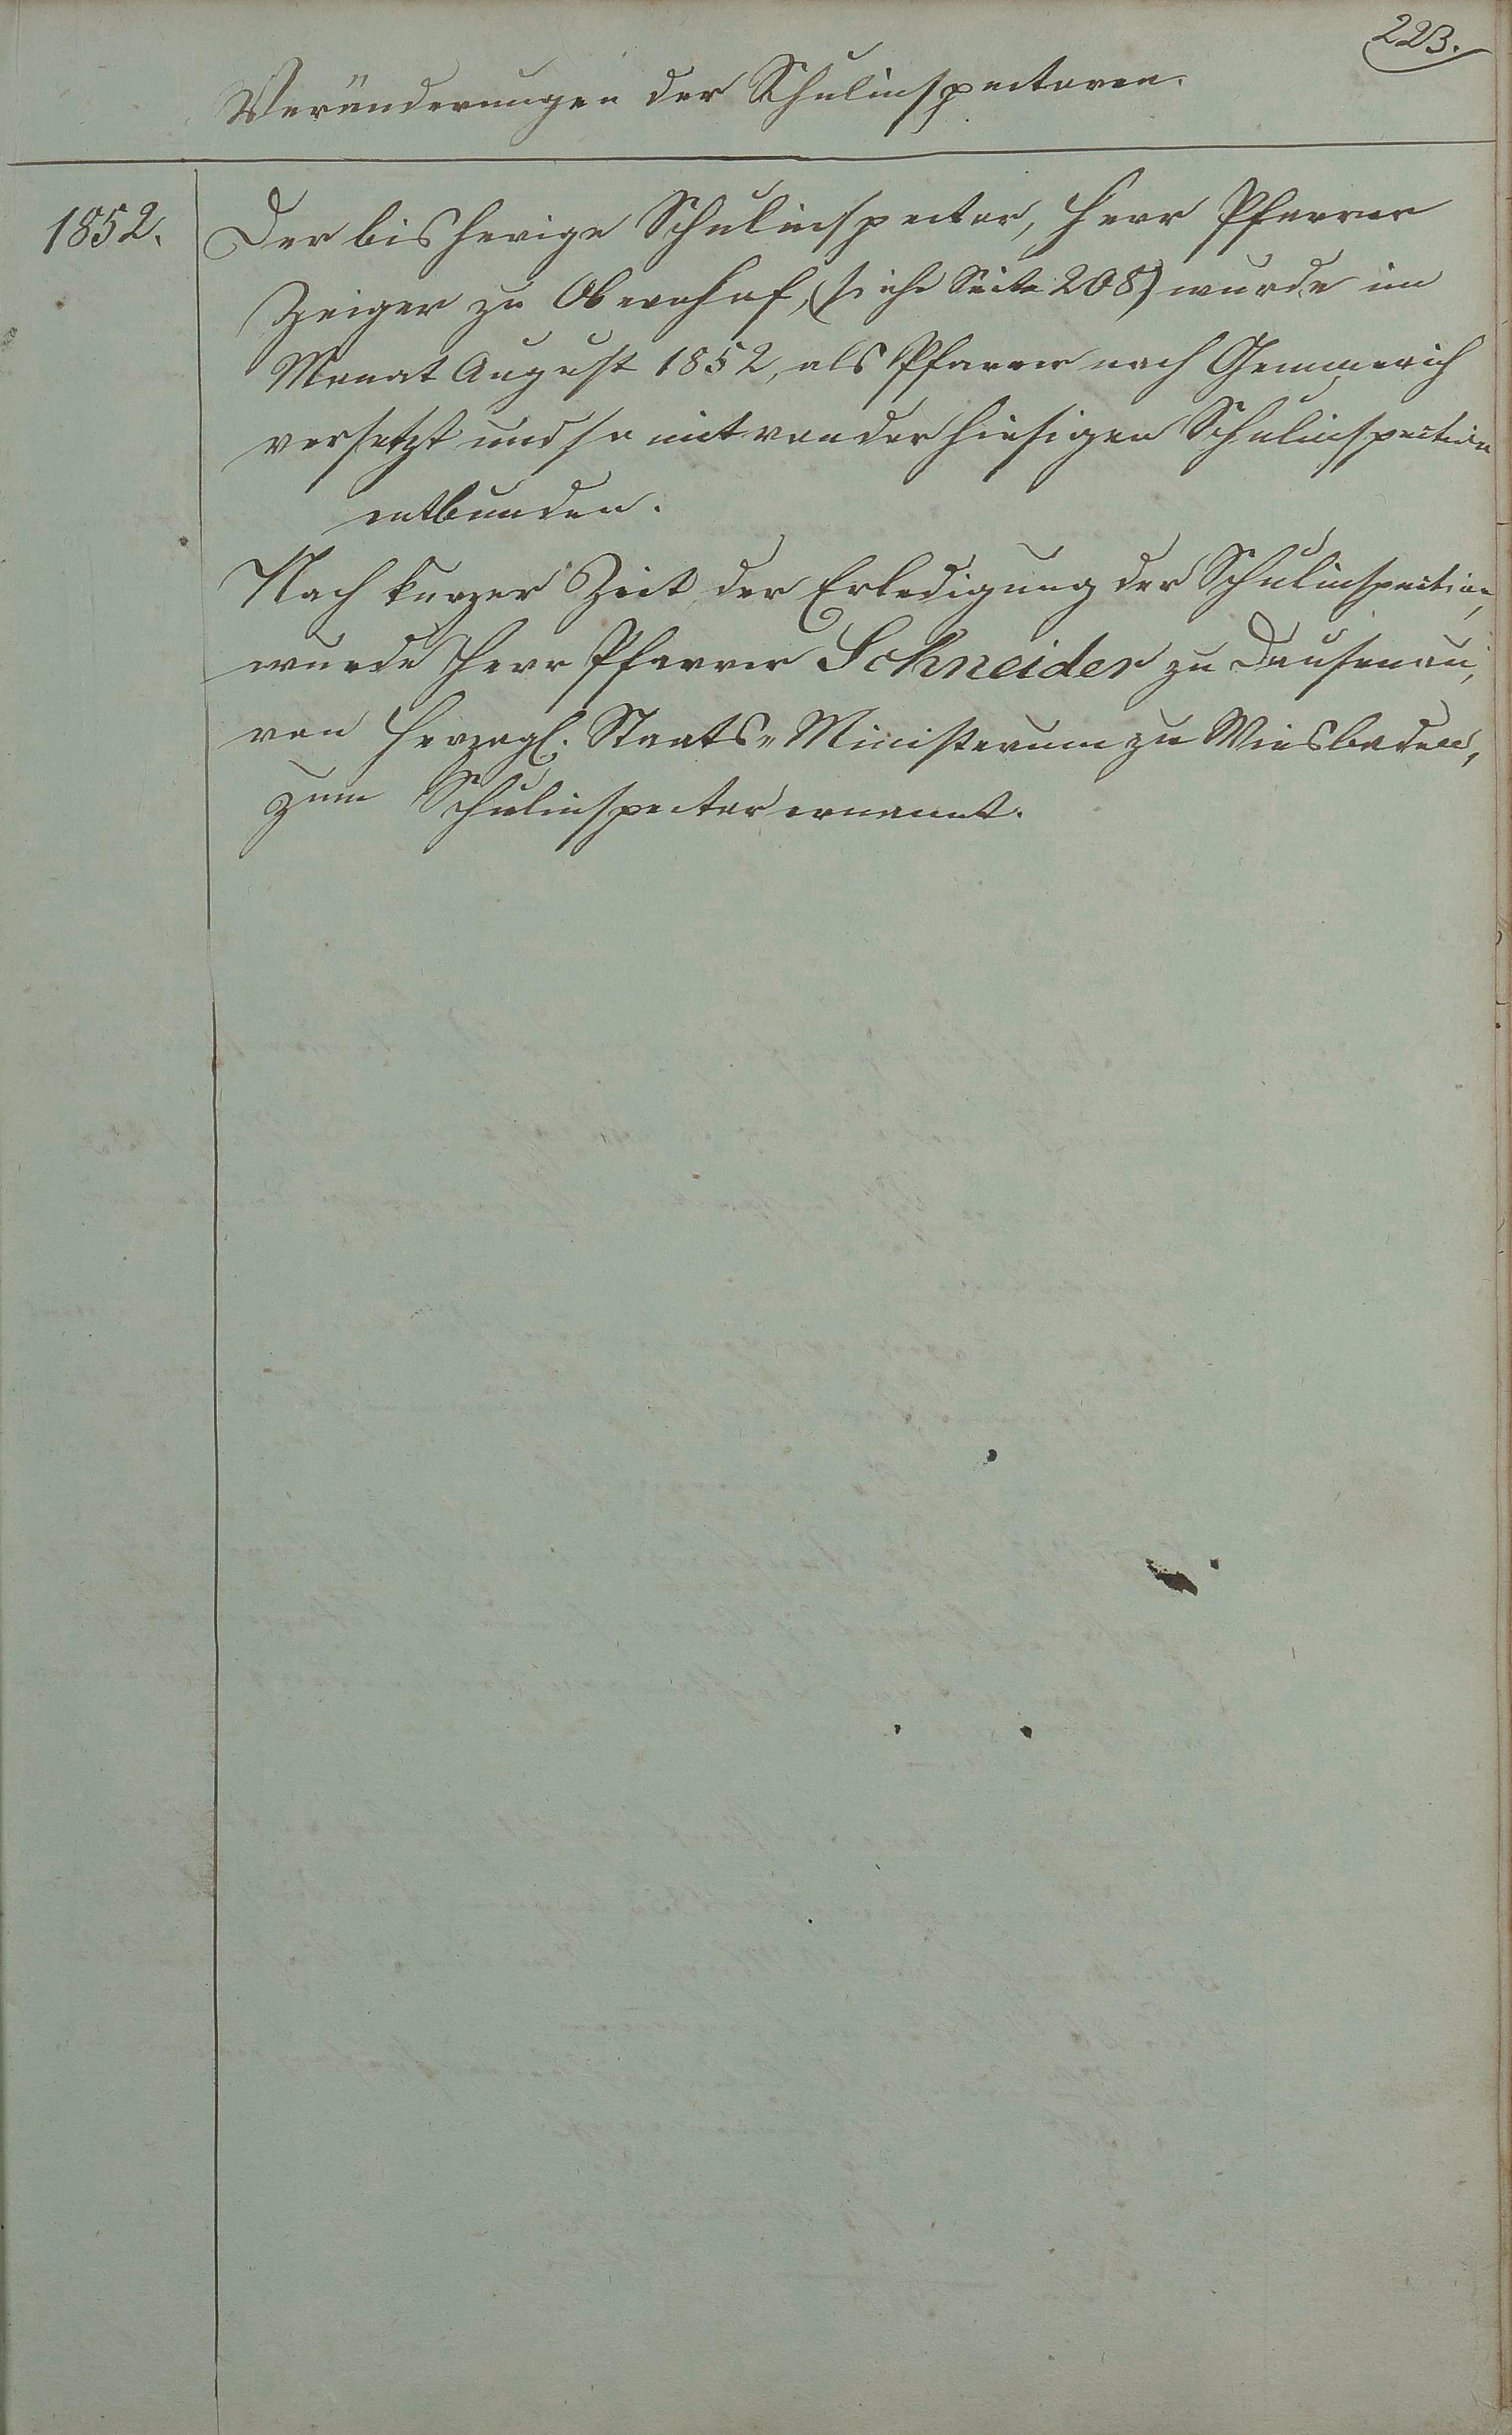 223.
Veränderungen der Schulinspectoren.
1852.
Der bisherige Schulinspector, Herr Pfarrer
Zeiger zu Obernhof, (siehe Seite 208) wurde im
Monat August 1852, als Pfarrer nach Gemmerich
versetzt und so mit von der hiesigen Schulinspection
entbunden.
Nach kurzer Zeit der Erledigung der Schulinspection,
wurde Herr Pfarrer Schneider zu Dausenau,
von Herzogl. Staats-Ministerum zu Wiesbaden,
zum Schulinspector ernannt.